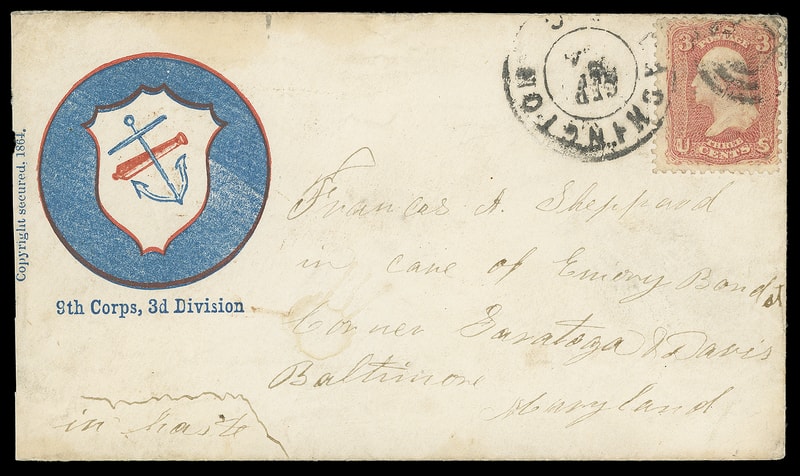 Copyright secured, 1864.
9th Corps, 3d Division
WASHINGTON
SEP
3 3
POSTAGE
U THREE S
CENTS
Frances A. Sheppard
in care of Emory Bond
Corner Saratoga & Davis
Baltimore
Maryland
in haste